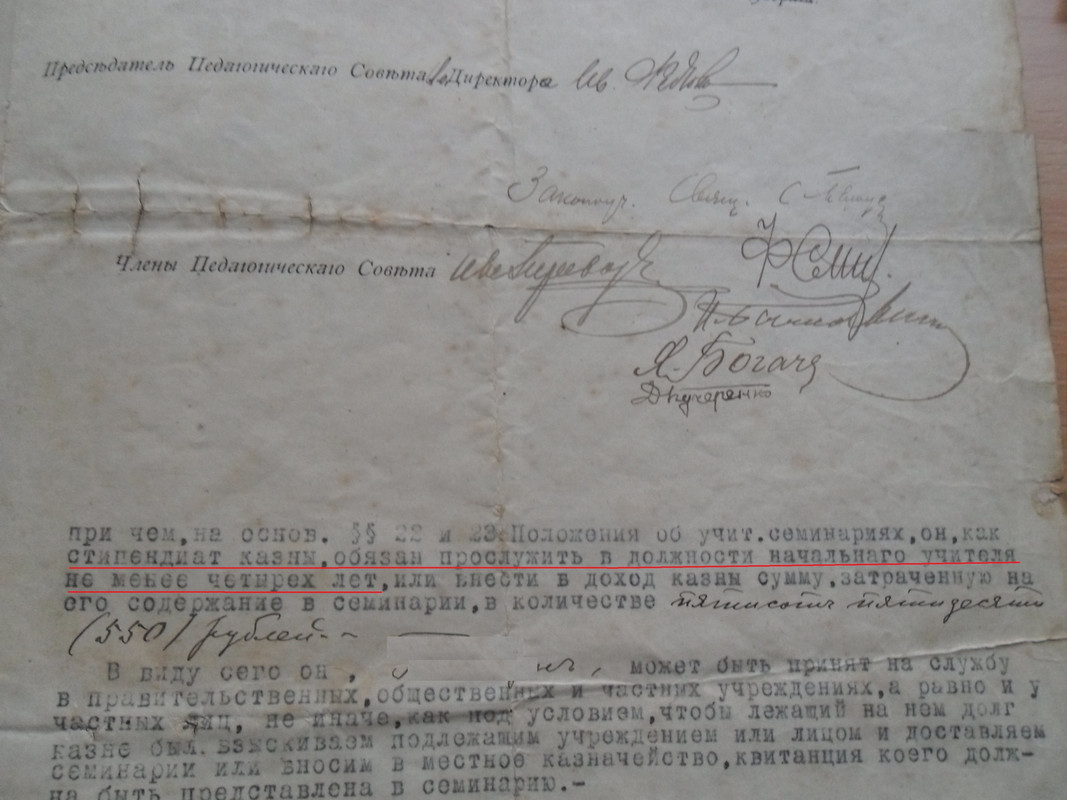 Предсѣдатель Педагогическаго Совѣта, Директора Ив.
Законоуч. Свящ. С.
Члены Педагогическаго Совѣта
Я. Богач
Д Кучеренко
при чем,на основ. §§ 22 и 23 Положения об учит.семинариях,он,как
стипендиат казны,обязан прослужить в должности начальнаго учителя
не менее четырех лет,или внести в доход казны сумму,затраченную на
его содержание в семинарии,в количестве пятисот пятидесяти
(550) рублей.-
В виду сего он , может быть принят на службу
в правительственных,общественных и частных учреждениях,а равно и у
частных лиц, не иначе,как под условием,чтобы лежащий на нем долг
казне был взыскиваем подлежащим учреждением или лицом и доставляем
семинарии или вносим в местное казначейство,квитанция коего долж-
на быть представлена в семинарию.-